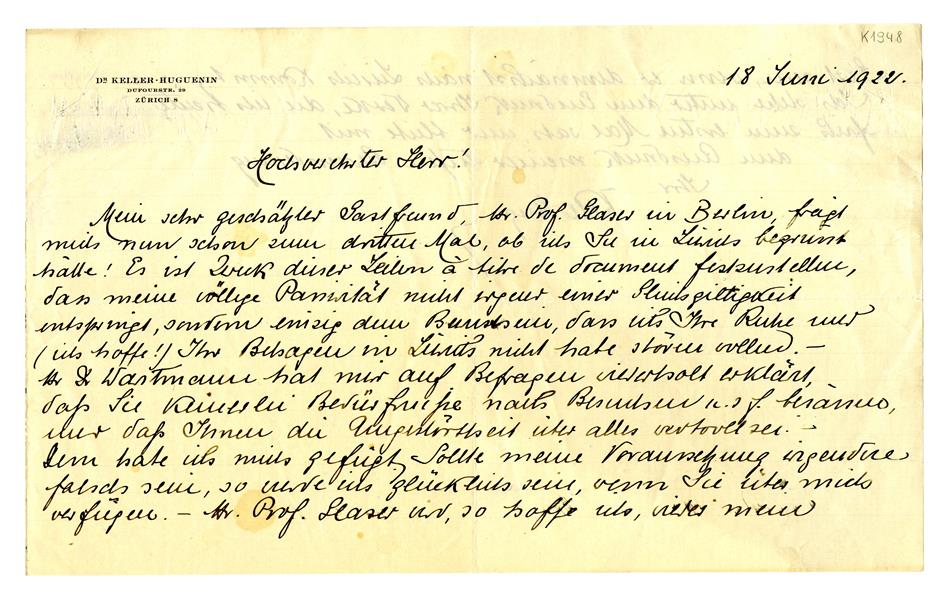 K1948
DR KELLER-HUGUENIN
DUFOURSTR. 29
ZÜRICH 8
18 Juni 1922.
Hochverehrter Herr!
Mein sehr geschätzter Gastfreund, Hr. Prof. Glaser in Berlin, frägt
mich nun schon zum dritten Mal, ob ich Sie in Zürich begrüsst
hätte! Es ist Zweck dieser Zeilen à titre de document festzustellen,
dass meine völlige Passivität nicht irgend einer Gleichgiltigkeit
entspringt, sondern einzig dem Bewusstsein, dass ich Ihre Ruhe und
(ich hoffe!) Ihr Behagen in Zürich nicht habe stören wollen. –
Hr Dr Wartmann hat mir auf Befragen wiederholt erklärt,
daß Sie keinerlei Bedürfnisse nach Besuchen u.s.f. besässen,
und daß Ihnen die Ungestörtheit über alles wertvoll sei. –
Dem habe ich mich gefügt. Sollte meine Voraussetzung irgendwie
falsch sein, so werde ich glücklich sein, wenn Sie über mich
verfügen. – Hr. Prof. Glaser wird, so hoffe ich, wieder mein